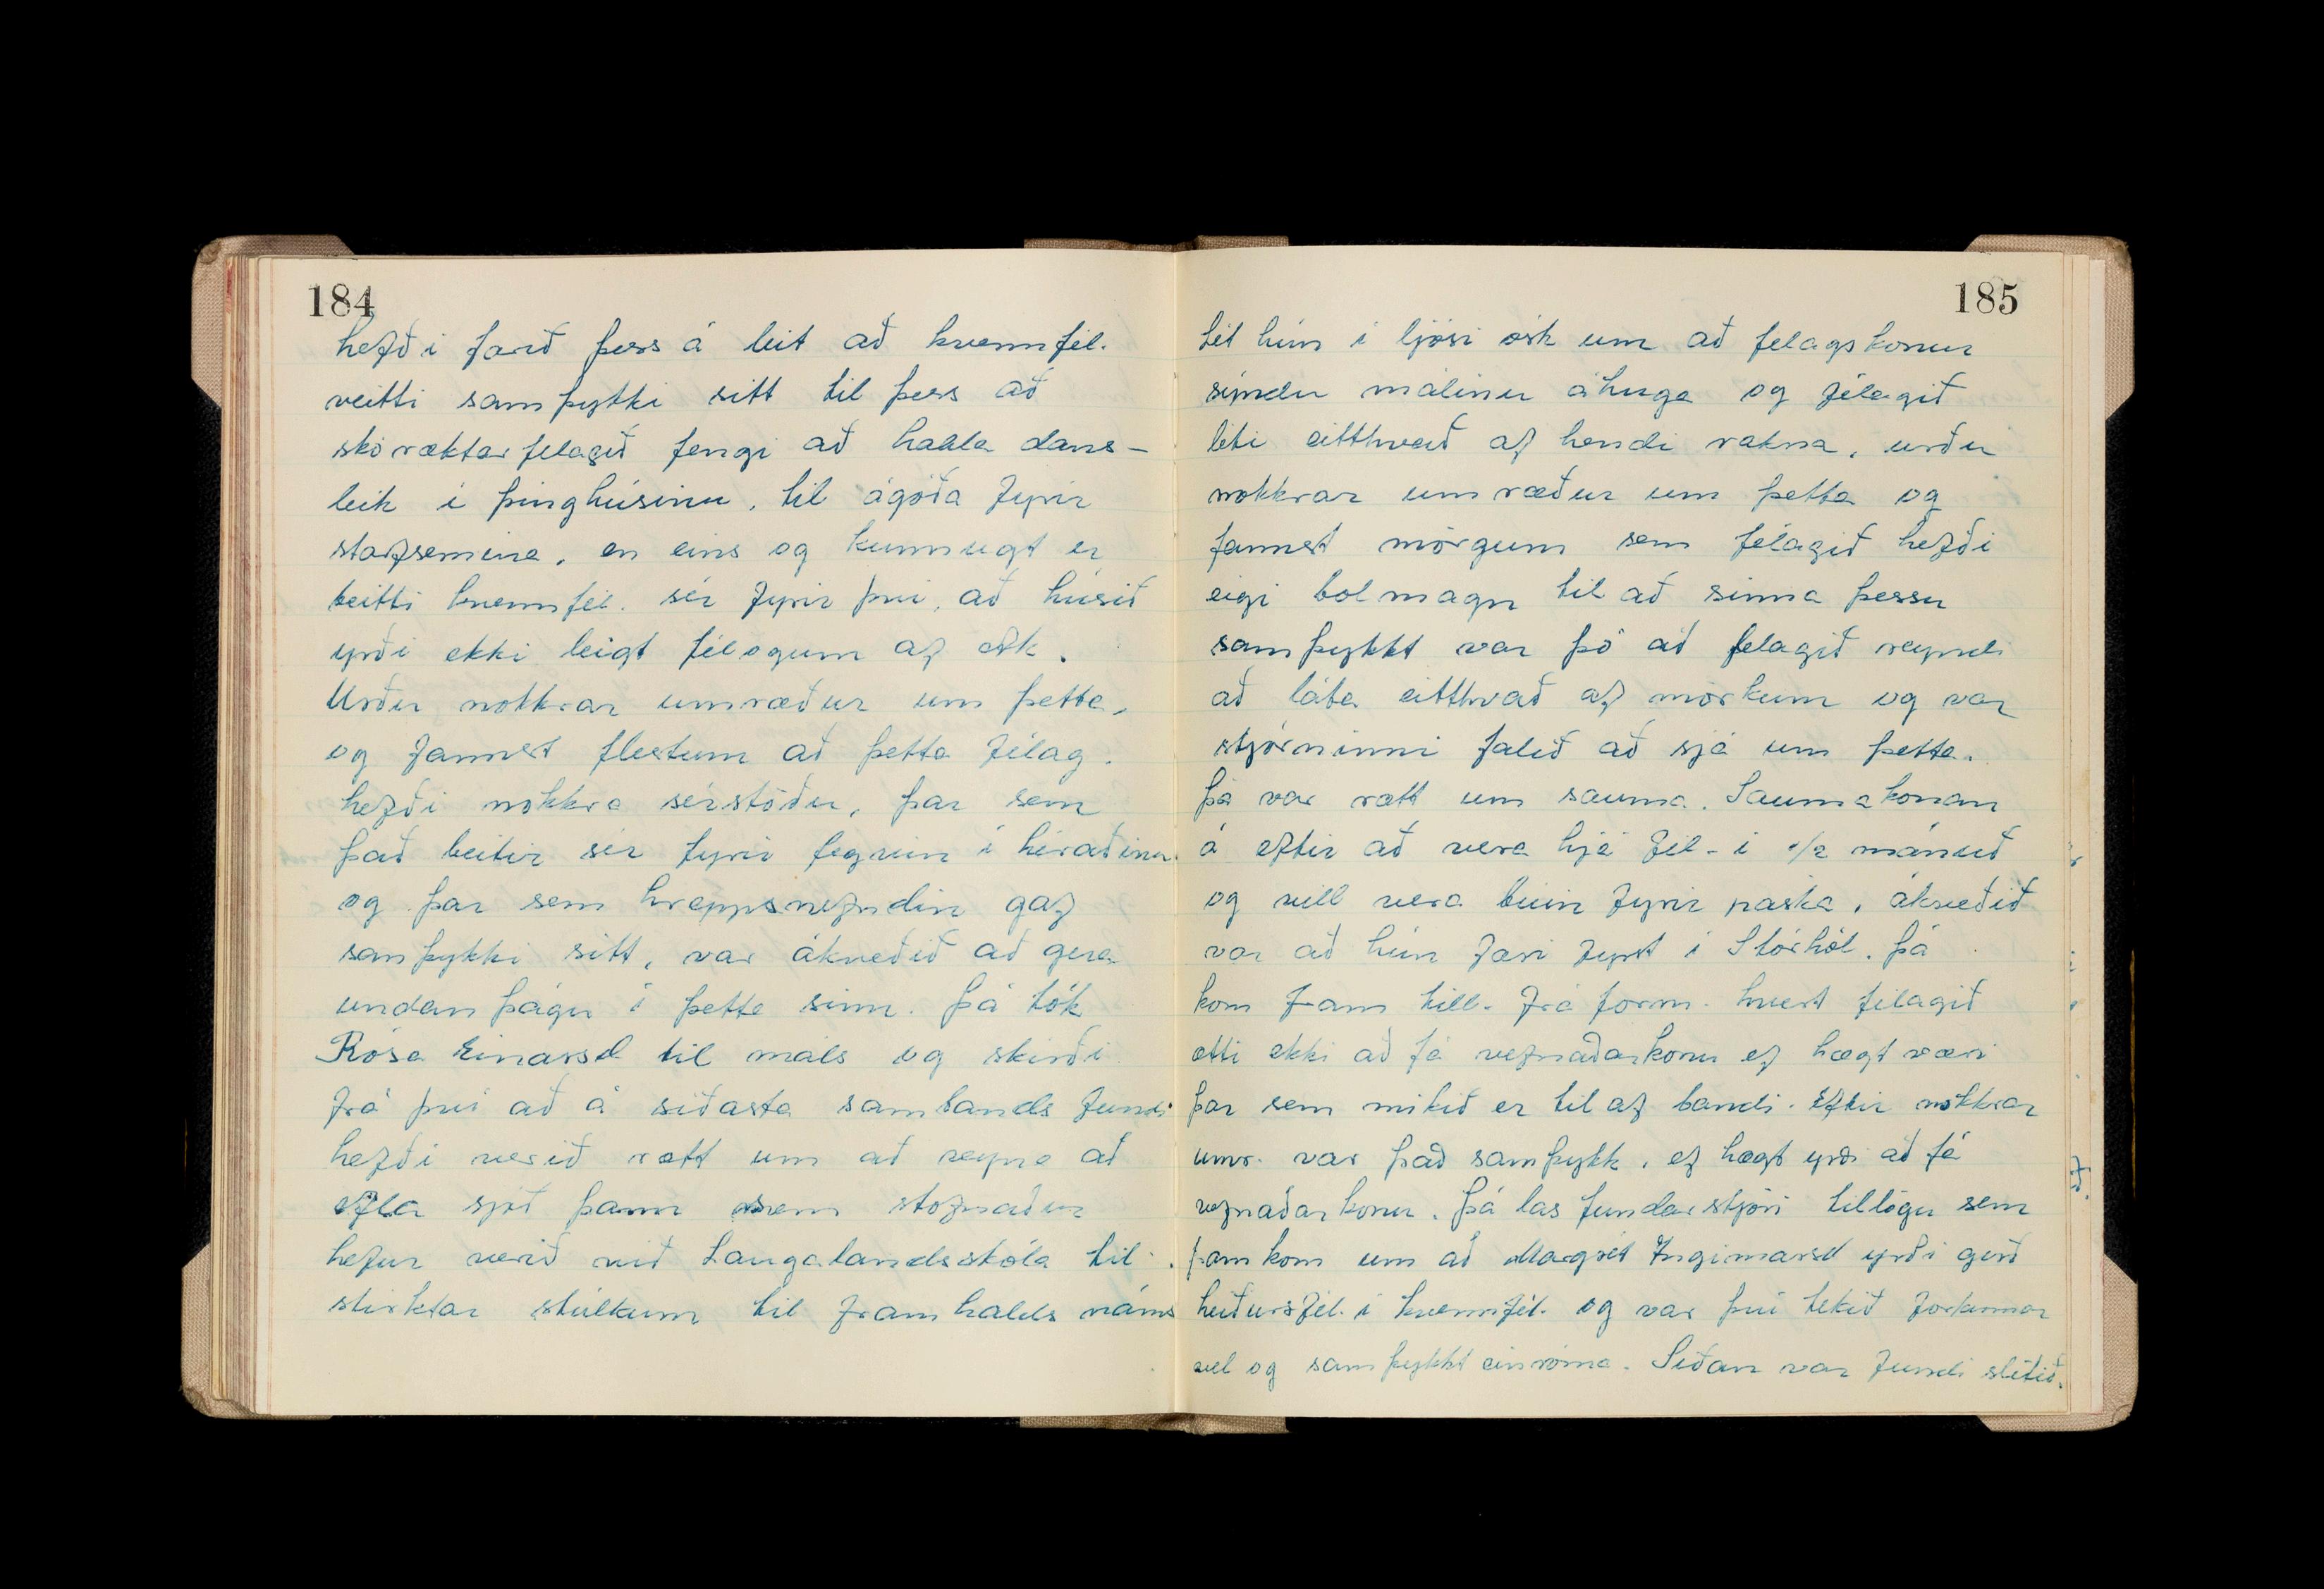 184
hefði farið þess á leit að kvennfél.
veitti samþykki sitt til þess að
skóræktarfelagið fengi að halda dans-
leik i þinghúsinu, til ágóða fyrir
starfsemina, en eins og kunnugt er
beitti kvennfél. sér fyrir þvi, að húsið
yrði ekki leigt félogum af Ak.
Urðu nokkrar umræður um þetta,
og fannst flestum að þetta félag.
hefði nokkra sérstöðu, þar sem
það beitir sér fyrir fegrun i héraðinu.
og þar sem hreppsnefndin gaf
samþykki sitt, var ákveðið að gera
undanþágu i þetta sinn. Þá tók
Rósa Einarsd til máls og skirði
frá þvi að á siðasta sambands fundi
hefði verið rætt um að reyna að
efla sjóð þann sem stofnaður
hefur verið við Laugalandsskóla til
stirktar stúlkum til framhalds náms
185
lét hún i ljósi ósk um að felagskonur
sýndu málinu áhuga og félagið
léti eitthvað af hendi rakna, urðu
nokkrar umræður um þetta og
fannst mörgum sem félagið hefði
eigi bolmagn til að sinna þessu
samþykkt var þó að felagið reyndi
að láta eitthvað af mörkum og var
stjórninni falið að sjá um þetta.
Þá var rætt um sauma. Saumakonan
á eftir að vera hjá fél- i 1/2 mánuð
og vill vera búin fyrir páska, ákveðið
var að hún færi fyrst i Stórhól. Þá
kom fram till. frá form. hvert félagið
ætti ekki að fá vefnaðarkonu ef hægt væri
þar sem mikið er til af bandi. Eftir nokkrar
umr. var það samþykk, ef hægt yrði að fá
vefnaðarkonu. Þá las fundarstjóri tillögu sem
fram kom um að Margrét Ingimarsd yrði gerð
heiðursfél. i kvennfél. og var þvi tekið forkunnar
vel og samþykkt einróma. Siðan var fundi slitið.